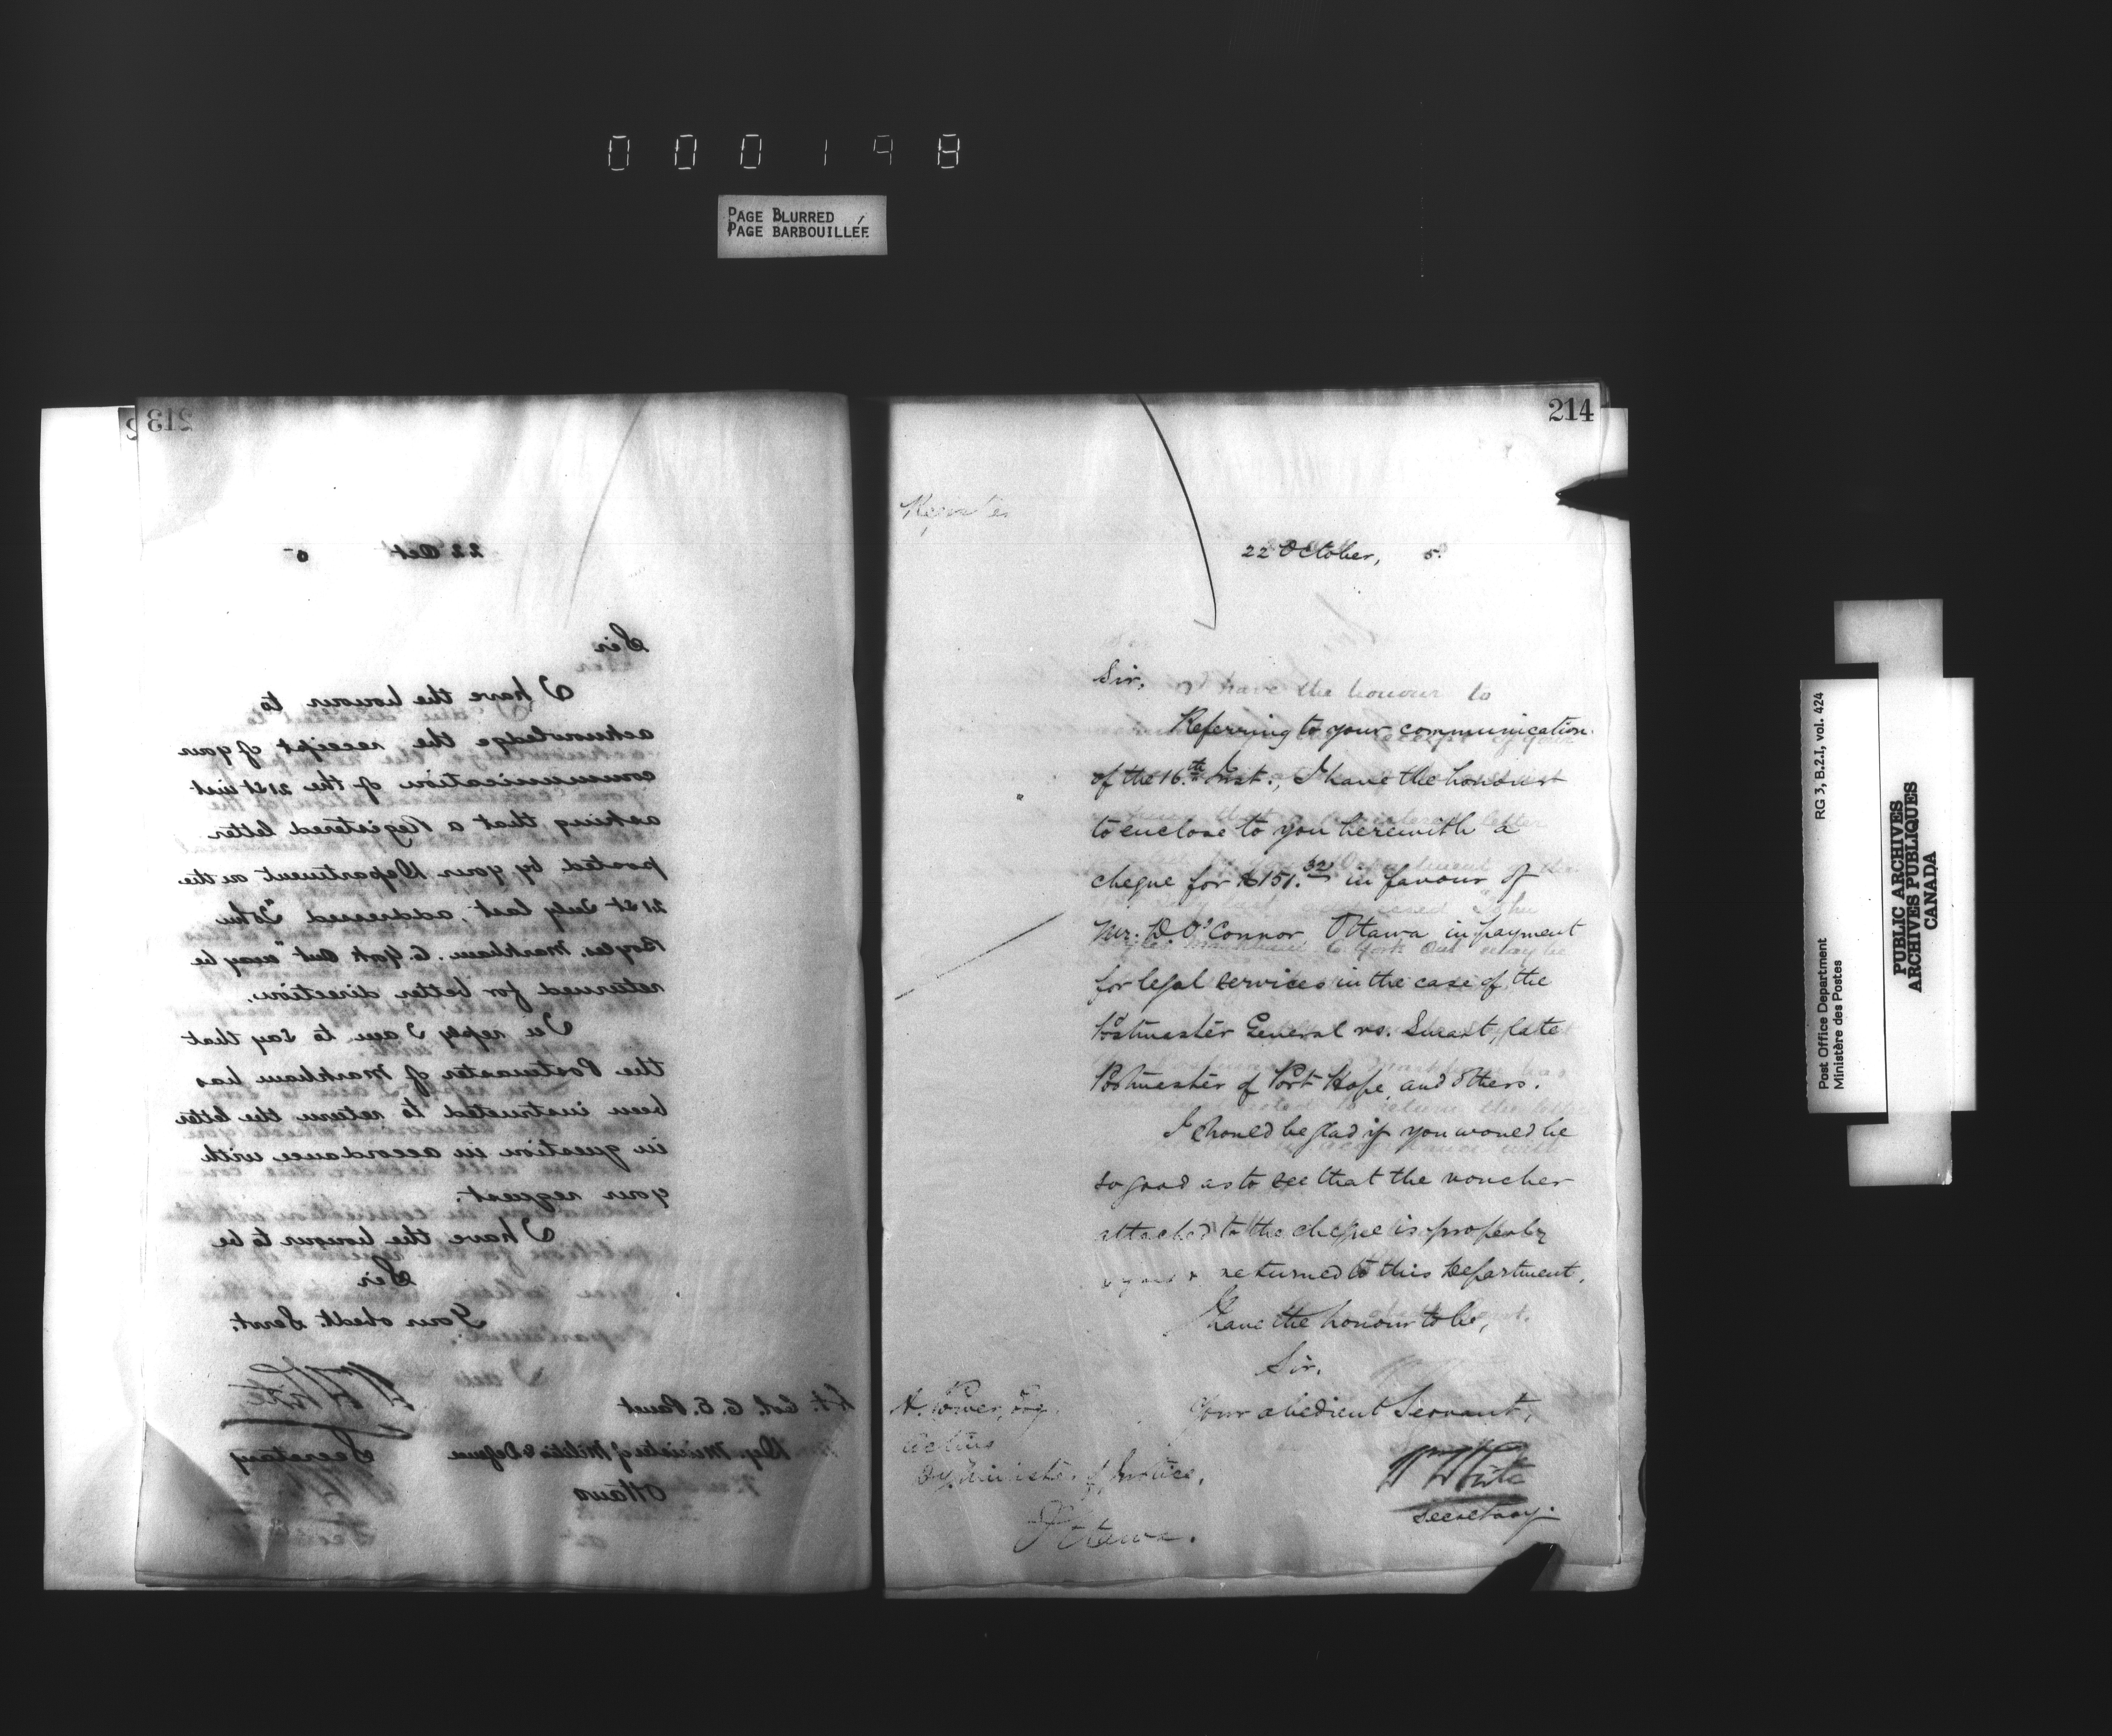 000198
PAGE BLURRED
PAGE BARBOUILLÉE
213
22 Oct 5
Sir
I have the honour to
acknowledge the receipt of your
communication of the 21st inst
asking that a Registered letter
posted by your Department on the
21st July last, addressed "John
Boyles. Markham. Co. York Ont" may be
returned for better direction.
In reply I am to say that
the Postmaster of Markham has
been instructed to return the letter
in question in accordance with
your request.
I have the honour to be
Sir
Your obedt. Servt.
Wm White
Secretary
Lt. Col. C. E. Panet
Dep. Minister of Militia & Defence
Ottawa
214
Register
22 October, 5.
Sir,
Referring to your communication
of the 16th. Inst., I have the honour
to enclose to you herewith a
cheque for $151.32 in favour of
Mr. D. O'Connor, Ottawa in payment
for legal services in the case of the
Postmaster General vs. Smart, late
Postmaster of Port Hope, and others.
I should be glad if you would be
so good as to see that the voucher
attached to the cheque is properly
signed & returned to this Department.
I have the honour to be,
Sir,
Your obedient Servant,
Wm White
Secretary.
A. Power, Esq.
Acting
Dy. Minister of Justice,
Ottawa.
RG 3, B.2.I, vol. 424
Post Office Department
Ministère des Postes
PUBLIC ARCHIVES
ARCHIVES PUBLIQUES
CANADA